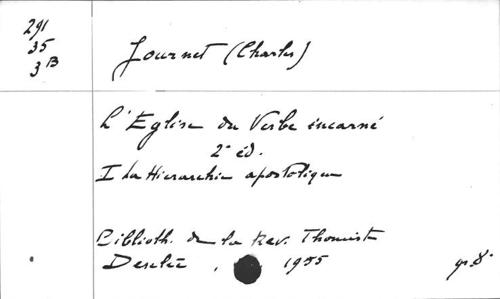 291
35
3 B
Journet (Charles)
L'Eglise du Verbe incarné
2e éd.
I La Hierarchie apostolique
Biblioth. de la Rev. Thomist
Desclée, 1955
gr. 8°